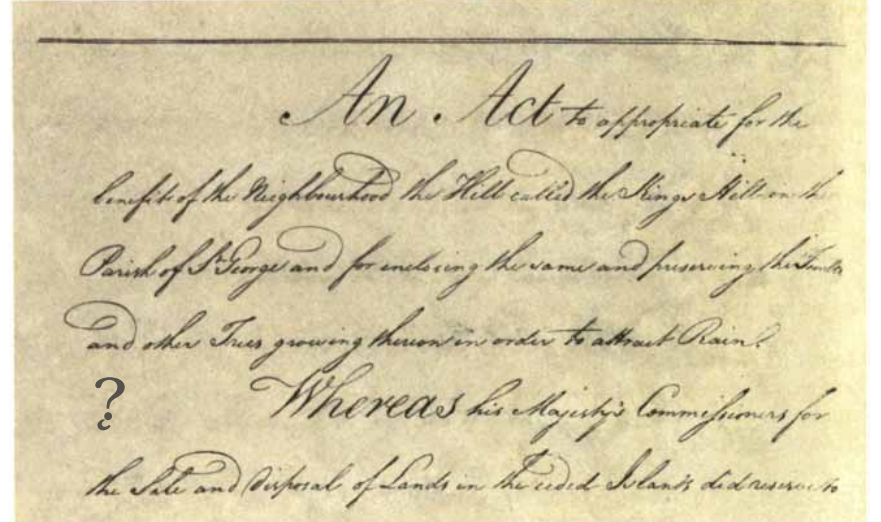 An . Act to appropriate for the
benefit of the Neighbourhood the Hill called the Kings Hill in the
Parish of St George and for enclosing the same and preserving the Timber
and other Trees growing thereon in order to attract Rain.
? Whereas his Majesty's Commissioners for
the Sale and Disposal of Lands in the ceded Islands did reserve to